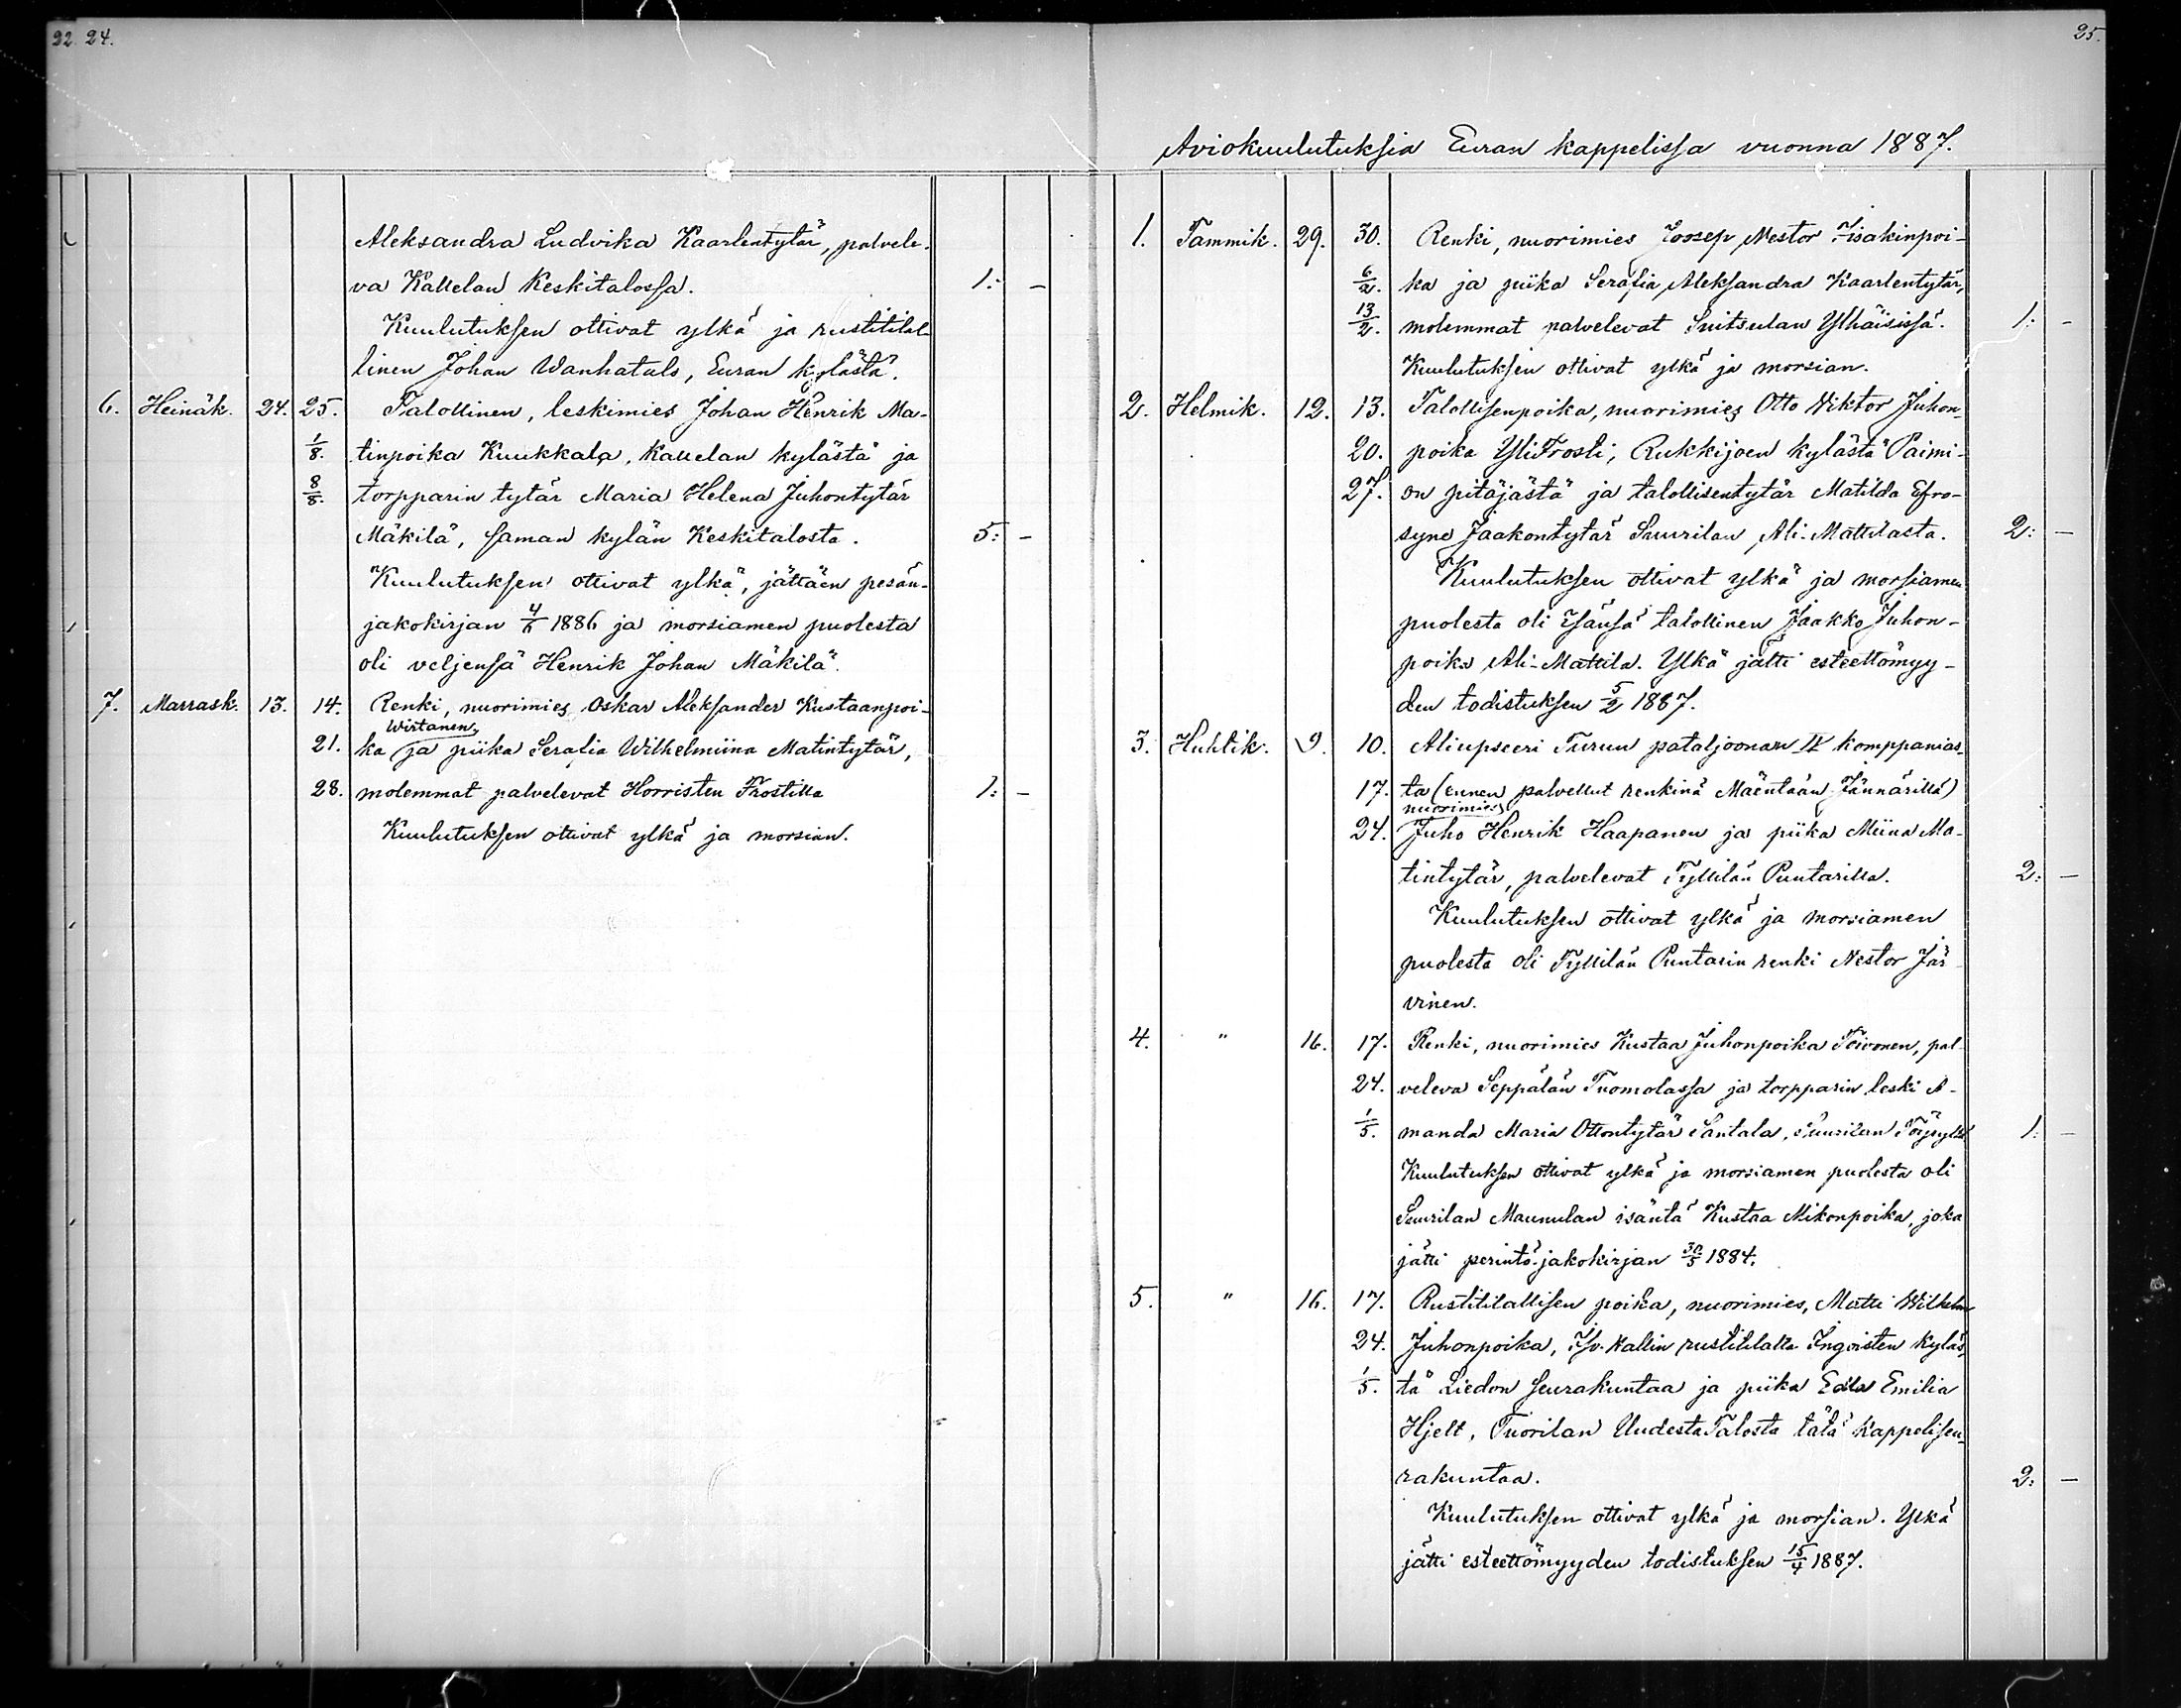 22. 24.
Aleksandra Ludvika Kaarlentytär, palvele-
va Kallelan Keskitalossa. 1:-
Kuulutuksen ottivat ylkä ja rustitilal-
linen Johan Wanhatalo, Euran kylästä.
6. Heinäk. 24. 25. Talollinen, leskimies Johan Henrik Ma-
1/8. tinpoika Kuukkala, Kauelan kylästä ja
8/8. torpparin tytär Maria Helena Juhontytär
Mäkilä, saman kylän Keskitalosta. 5:-
Kuulutuksen ottivat ylkä, jättäen pesän-
jakokirjan 4/6 1886 ja morsiamen puolesta
oli veljensä Henrik Johan Mäkilä.
7. Marrask. 13. 14. Renki, nuorimies Oskar Aleksander Kustaanpoi-
Wirtanen
21. ka ja piika Serafia Wilhelmiina Matintytär,
28. molemmat palvelevat Horristen Frostilla 1:-
Kuulutuksen ottivat ylkä ja morsian.
25.
Aviokuulutuksia Euran kappelissa vuonna 1887.
1. Tammik. 29. 30. Renki, nuorimies Joosep Nestor Iisakinpoi-
6/2. ka ja piika Serafia Aleksandra Kaarlentytär,
13/2. molemmat palvelevat Snitsulan Ylhäisissä. 1:-
Kuulutuksen ottivat ylkä ja morsian.
2. Helmik. 12. 13. Talollisenpoika, nuorimies Otto Wiktor Juhon-
20. poika YliFrosti, Rukkijoen kylästä Paimi-
27. on pitäjästä ja talollisentytär Matilda Efro-
syne Jaakontytär Suurilan Ali-Mattilasta. 2:-
Kuulutuksen ottivat ylkä ja morsiamen
puolesta oli isänsä talollinen Jaakko Juhon-
poika Ali-Mattila. Ylkä jätti esteettömyy-
den todistuksen 5/2 1887.
3. Huhtik. 9. 10. Aliupseeri Turun pataljoonan IV komppanias-
17. ta (ennen palvellut renkinä Mäentaan Jännärillä)
nuorimies
24. Juho Henrik Haapanen ja piika Miina Ma-
tintytär, palvelevat Tyllilän Puntarilla. 2:-
Kuulutuksen ottivat ylkä ja morsiamen
puolesta oli Tyllilän Puntarin renki Nestor Jär-
vinen.
4. " 16. 17. Renki, nuorimies Kustaa Juhonpoika Toivonen, pal-
24. veleva Seppälän Tuomolassa ja torpparin leski A-
1/5. manda Maria Ottontytär Santala, Suurilan 1:-
Kuulutuksen ottivat ylkä ja morsiamen puolesta oli
Suurilan Maunulan isäntä Kustaa Mikonpoika, joka
jätti perintö-jakokirjan 30/5 1884.
5. " 16. 17. Rustitilallisen poika, nuorimies, Matti Wilhelm
24. Juhonpoika, Iso-Kallin rustitilalta Ingoisten kyläs-
1/5. tä Liedon seurakuntaa ja piika Edla Emilia
Hjelt, Tuorilan UudestaTalosta tätä kappeliseu-
rakuntaa. 2:-
Kuulutuksen ottivat ylkä ja morsian. Ylkä
jätti esteettömyyden todistuksen 15/4 1887.